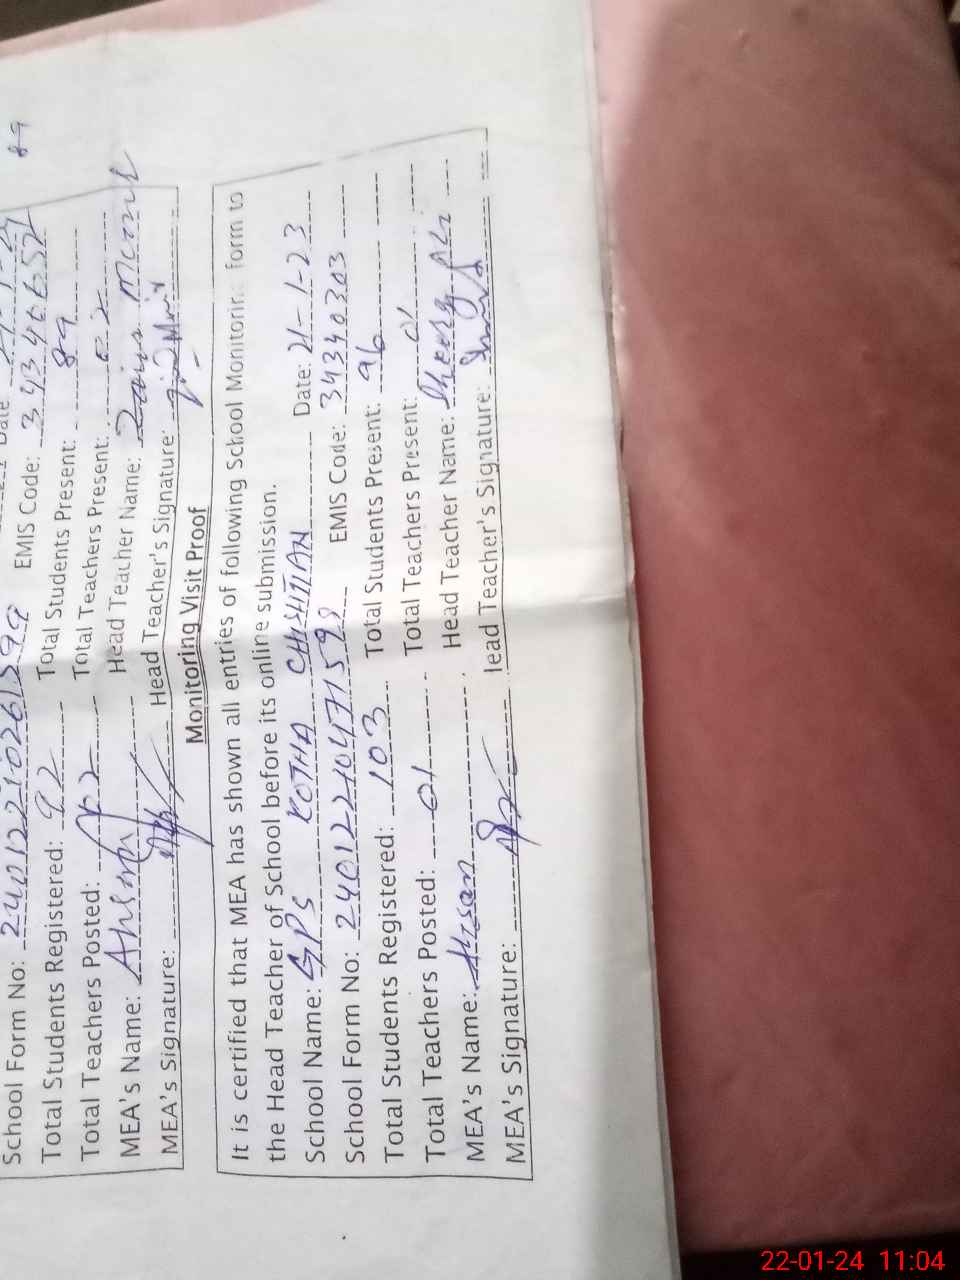 School Form No: 24012210261599 EMIS Code: 34340652
Total Students Registered: 92 Total Students Present: 89 89
Total Teachers Posted: 02 Total Teachers Present: 02
MEA's Name: Ahsan Head Teacher Name:
MEA's Signature: Head Teacher's Signature:
Monitoring Visit Proof
It is certified that MEA has shown all entries of following School Monitoring form to
the Head Teacher of School before its online submission.
School Name: GPS KOTHA CHISHTIAN Date: 21-1-23
School Form No: 2401221047159 EMIS Code: 34340303
Total Students Registered: 103 Total Students Present: 96
Total Teachers Posted: 01 Total Teachers Present: 01
MEA's Name: Ahsan Head Teacher Name:
MEA's Signature: lead Teacher's Signature:
22-01-24 11:04